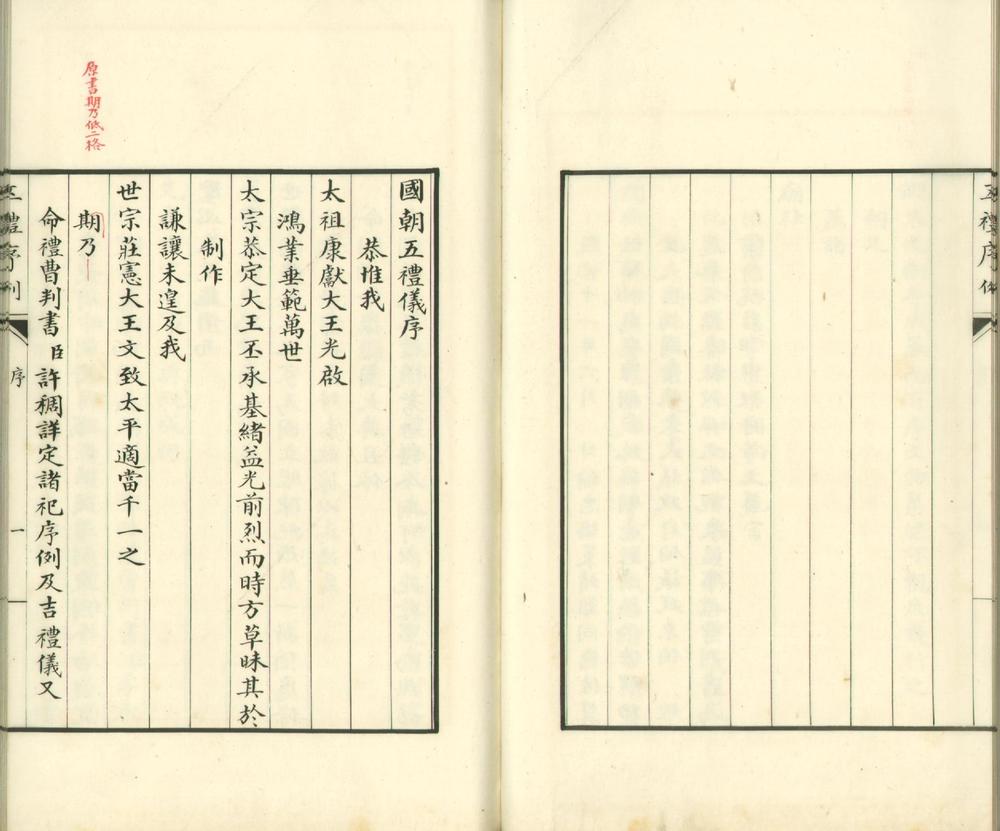 五禮序例
國朝五禮儀序
恭惟我
太祖康獻大王光啟
鴻業垂範萬世
太宗恭定大王丕承基緒益光前烈而時方草昧其於
制作
謙讓未遑及我
世宗莊憲大王文致太平適當千一之
期乃
原書期乃低二格
命禮曹判書臣許稠詳定諸祀序例及吉禮儀又
五禮序例
序
一